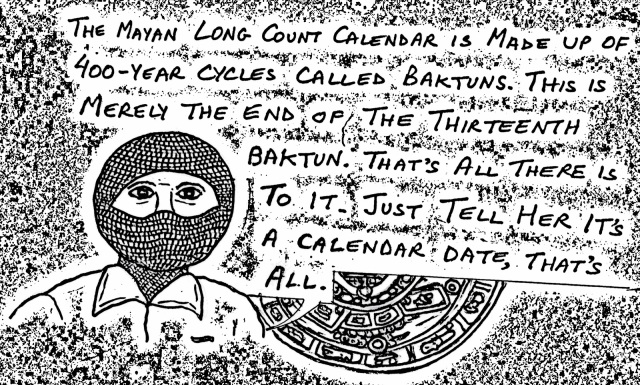 The Mayan Long Count Calendar is Made up of
400-Year Cycles Called Baktuns. This is
Merely The End of The Thirteenth
Baktun. That's All There is
To it. Just Tell Her It's
A Calendar Date, That's
All.